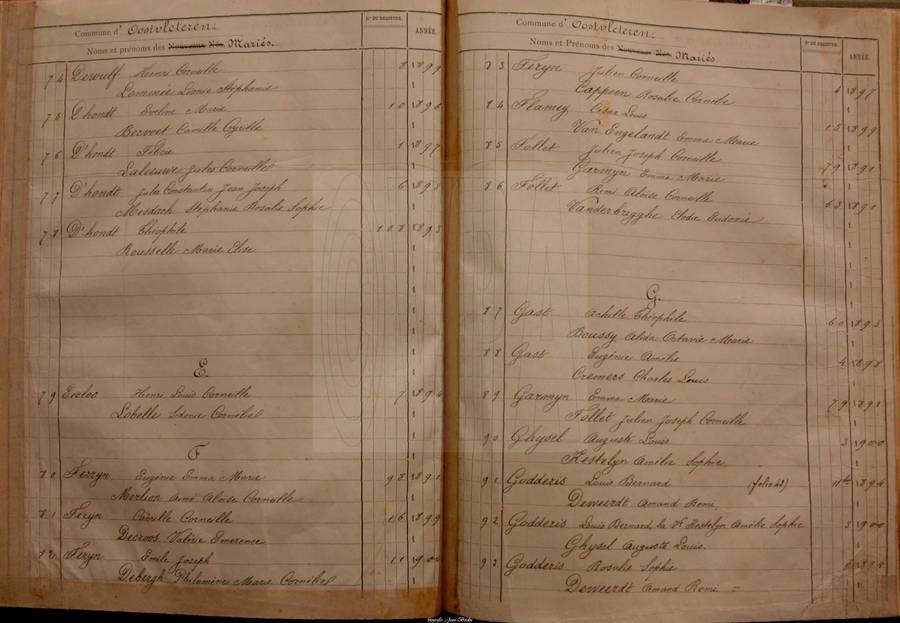 Commune d' Oostvleteren:
Noms et prénoms des Nouveaux Nés. Mariés.
Nº DU REGISTRE.
ANNÉE.
74 Dewulf Henri Corneille 8 1899
Lommée Léonie Stéphanie
75 D'hondt Eveline Marie 10 1890
Bervoet Camille Cyrille
76 D'hondt Félicie 1 1897
Laleeuwe Jules Corneille
77 D'hondt Jules Constantin Jean Joseph 6 1898
Mesdach Stéphanie Rosalie Sophie
78 D'hondt Théophile 108 1893
Rousselle Marie Elise
E.
79 Eeloo Henri Louis Corneille 7 1894
Lobelle Sidonie Cornélie
F
80 Ferryn Eugénie Emma Marie 98 1892
Merlion Aimé Aloïse Corneille
81 Feryn Camille Corneille 16 1899
Decroos Valérie Emerence
82 Feryn Emile Joseph 11 1900
Debergh Philomène Marie Cornélie
Commune d' Oostvleteren:
Noms et Prénoms des Nouveaux Nés. Mariés
Nº DU REGISTRE.
ANNÉE.
83 Feryn Julien Corneille 4 1897
Cappoen Rosalie Cornélie
84 Flamey Cesar Louis 13 1899
Van Engelandt Emma Marie
85 Follet Julien Joseph Corneille 79 1892
Garmyn Emma Marie
86 Follet Remi Aloïse Corneille 63 1891
Vanderbrigghe Elodie Eudoxie
G.
87 Gast Achille Théophile 60 1893
Boussy Alida Octavie Marie
88 Gast Eugénie Amélie 4 1898
Cremers Charles Louis
89 Garmyn Emma Marie 79 1892
Follet Julien Joseph Corneille
90 Ghysel Auguste Louis 3 1900
Kestelyn Amélie Sophie
91 Godderis Louis Bernard (folio 42) 11bis 1896
Deweerdt Amand Remi,
92 Godderis Louis Bernard, la Vve Kestelyn Amélie Sophie 3 1900
Ghysel Auguste Louis.
93 Godderis Rosalie Sophie
Deweerdt Amand Remi =